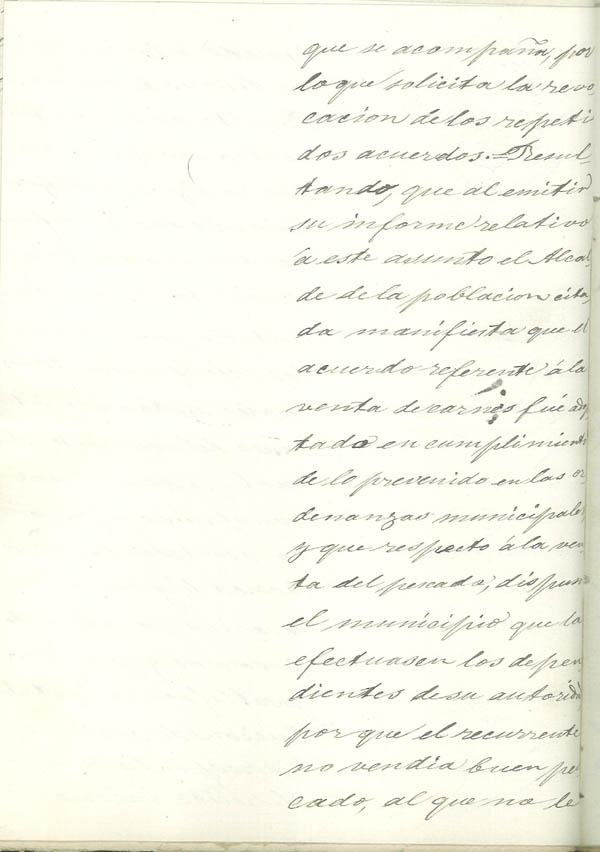 que se acompaña, por
lo que solicita la revo
cacion de los repeti
dos acuerdos.=Resul-
tando, que al emitir
su informe relativo
á este asunto el Alcal
de de la poblacion cita
da manifiesta que el
acuerdo referente á la
venta de carnes fué adop
tado en cumplimiento
de lo prevenido en las or
denanzas municipales,
y que respecto á la ven
ta del pescado, dispuso
el municipio que la
efectuasen los depen
dientes de su autoridad
por que el recurrente
no vendia buen pes
cado, al que no le